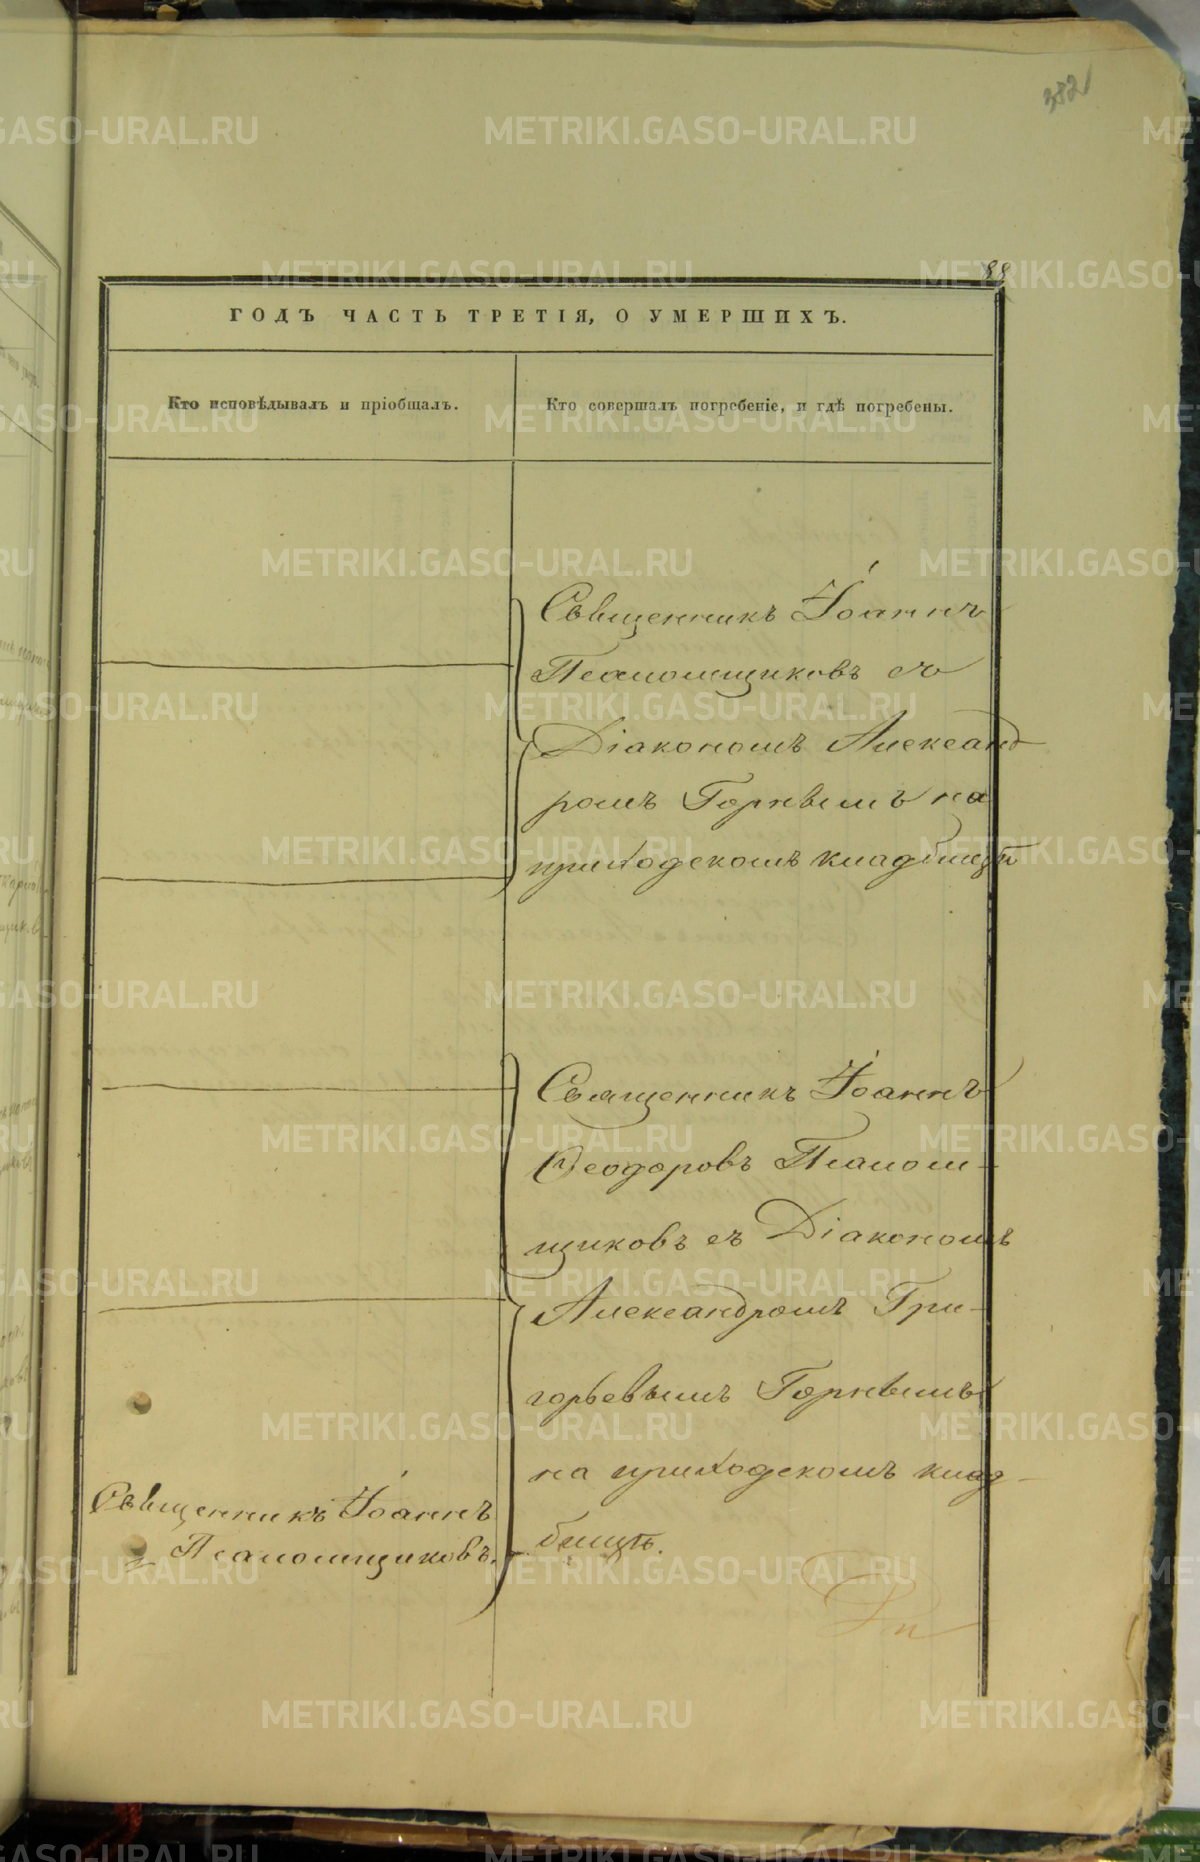 382
88
ГОДЪ ЧАСТЬ ТРЕТІЯ, О УМЕРШИХЪ.
Кто исповѣдывалъ и пріобщалъ.
Кто совершалъ погребеніе, и гдѣ погребены.
Священникъ Іоаннъ
Псаломщиковъ съ
Діакономъ Александ
ромъ Горнымъ на
приходскомъ кладбищѣ
Священникъ Іоаннъ
Ѳеодоровъ Псалом-
щиковъ съ Діакономъ
Александромъ Гри-
горьевымъ Горнымъ
на приходскомъ клад-
бищѣ.
Священникъ Іоаннъ
Псаломщиковъ.
METRIKI.GASO-URAL.RU